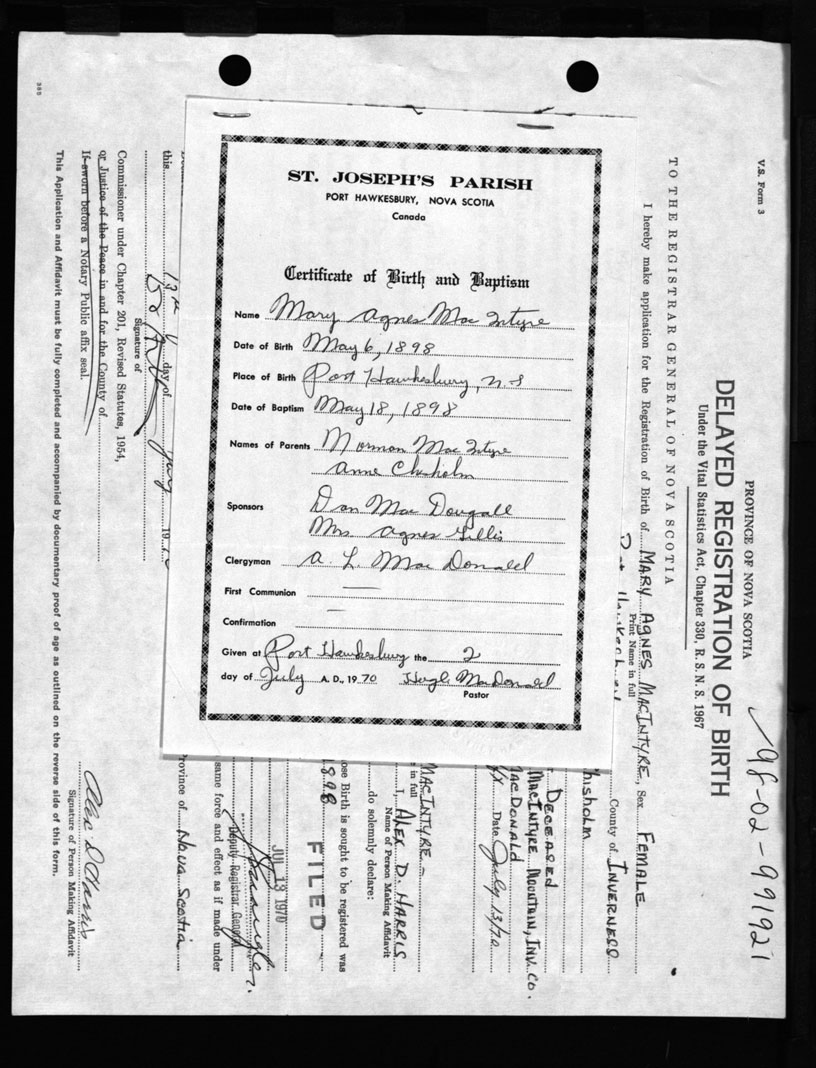 ST. JOSEPH'S PARISH
PORT HAWKESBURY, NOVA SCOTIA
Canada
Certificate of Birth and Baptism
Name Mary Agnes Mac Intyre
Date of Birth May 6, 1898
Place of Birth Port Hawkesbury, N.S
Date of Baptism May 18, 1898
Names of Parents Norman Mac Intyre
Anne Chisholm
Sponsors Dan Mac Dougall
Mrs. Agnes Gillis
Clergyman A. L. Mac Donald
First Communion —
Confirmation —
Given at Port Hawkesbury the 2
day of July A. D., 1970 Hugh MacDonald
Pastor
V.S. Form 3
98-02-991921
PROVINCE OF NOVA SCOTIA
DELAYED REGISTRATION OF BIRTH
Under the Vital Statistics Act, Chapter 330, R. S. N. S. 1967
TO THE REGISTRAR GENERAL OF NOVA SCOTIA
I hereby make application for the Registration of Birth of MARY AGNES MACINTYRE, Sex FEMALE
Print Name in full
County of INVERNESS
hisholm
DECEASED
MACINTYRE MOUNTAIN, INV. CO.
MACDONALD
Date July 13/70
MACINTYRE
in full
I, ALEX D. HARRIS
Name of Person Making Affidavit
do solemnly declare:
ose Birth is sought to be registered was
1898
FILED
JUL 13 1970
Deputy Registrar General
same force and effect as if made under
Province of Nova Scotia
this 13th day of July 1970
Signature of
Commissioner under Chapter 201, Revised Statutes, 1954,
or Justice of the Peace in and for the County of
If sworn before a Notary Public affix seal.
Alex D Harris
Signature of Person Making Affidavit
This Application and Affidavit must be fully completed and accompanied by documentary proof of age as outlined on the reverse side of this form.